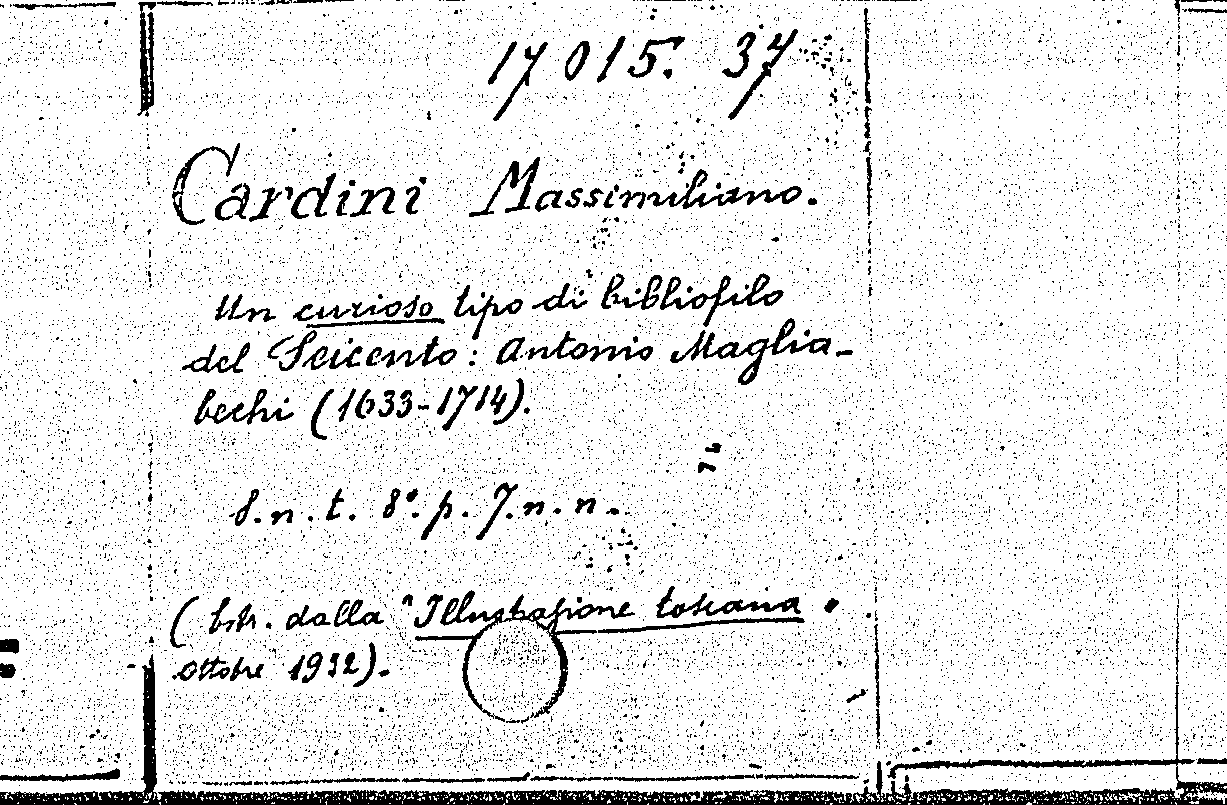 17015. 37
Cardini Massimiliano.
Un curioso tipo di bibliofilo
del Seicento: Antonio Maglia-
bechi (1633-1714).
S.n.t. 8°. p. 7.n.n.
(Estr. dalla "Illustrazione toscana"
ottobre 1932).